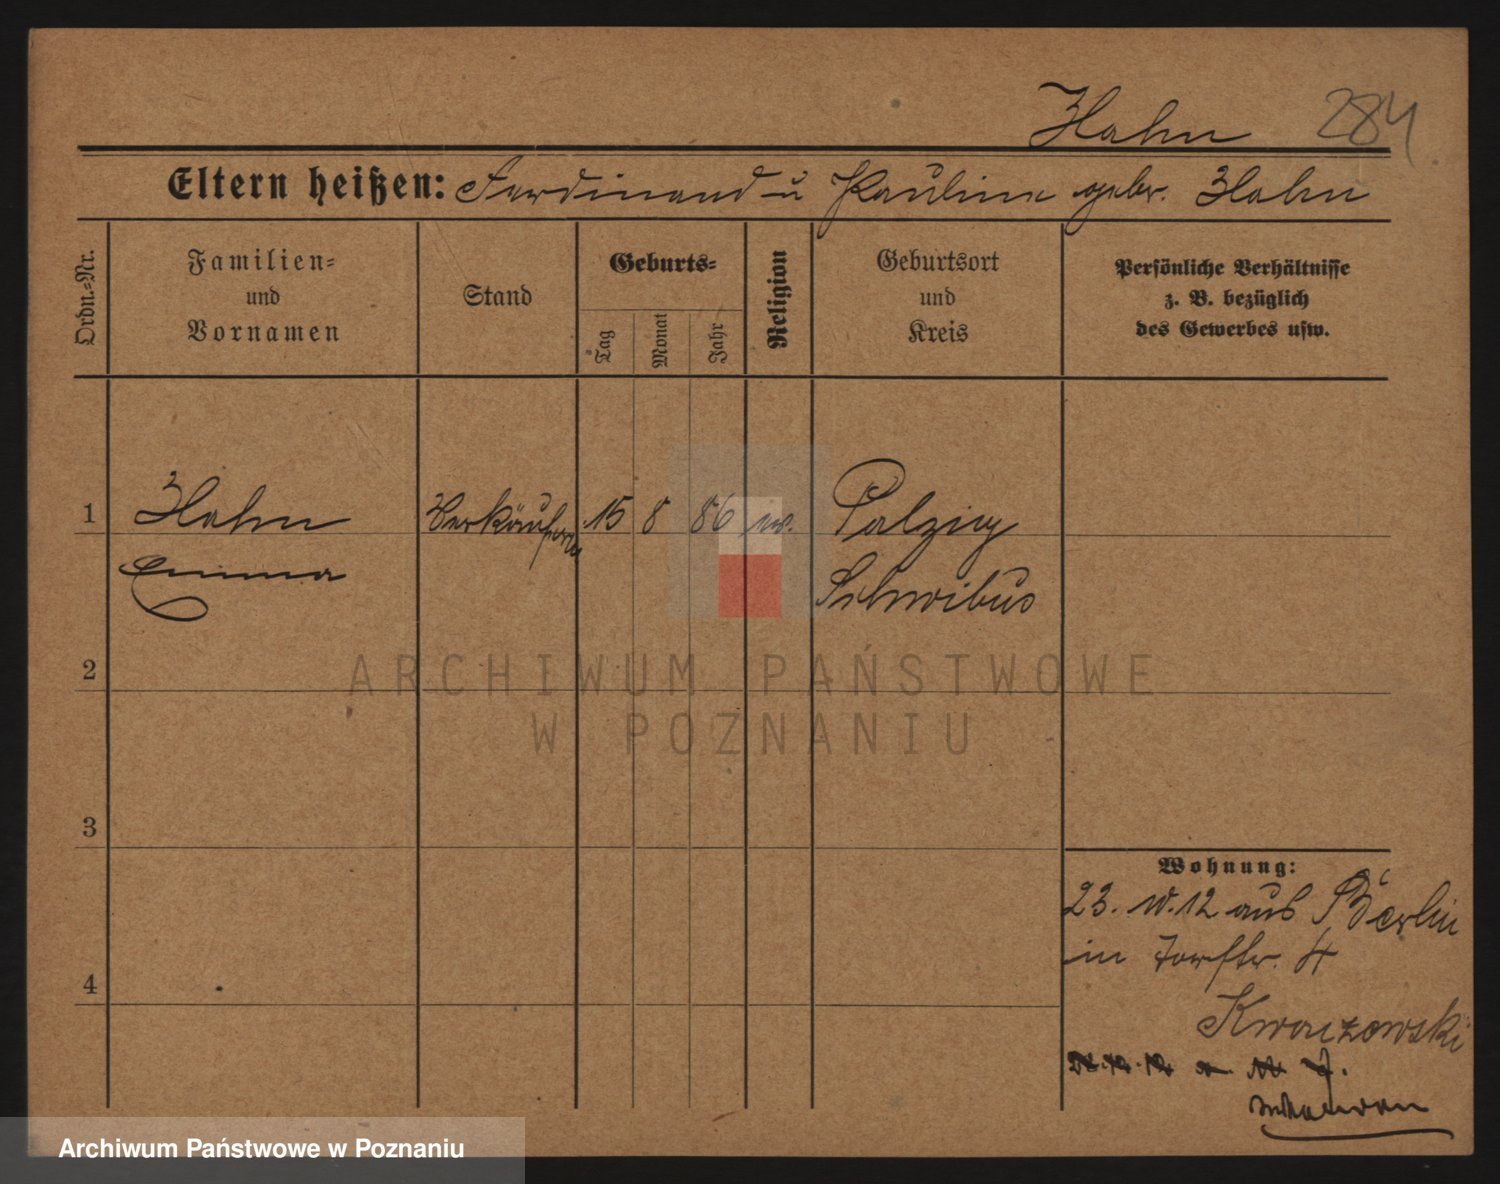 Hahn 284
Eltern heißen: Ferdinand u Pauline gebr. Hahn
Ordn.=Nr.
Familien=
und
Vornamen
Stand
Geburts=
Tag
Monat
Jahr
Religion
Geburtsort
und
Kreis
Persönliche Verhältnisse
z. B. bezüglich
des Gewerbes usw.
1 Hahn Verkäuferin 15 8 86 Palzig
Emma Schwibus
2
ARCHIWUM PAŃSTWOWE
W POZNANIU
3
Wohnung:
23. 10. 12 aus Berlin
4 in Torfstr. 4
Archiwum Państwowe w Poznaniu